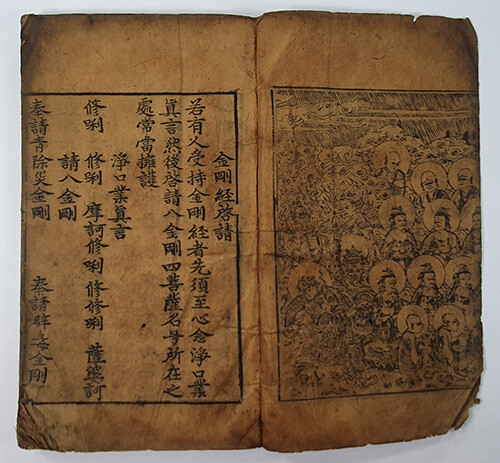 金剛經啓請
若有人受持金剛經者先須至心念淨口業
真言然後啓請八金剛四菩薩名号所在之
處常當擁護
淨口業真言
修唎 修唎 摩訶修唎 修修唎 薩婆訶
請八金剛
奉請青除災金剛 奉請辟毒金剛